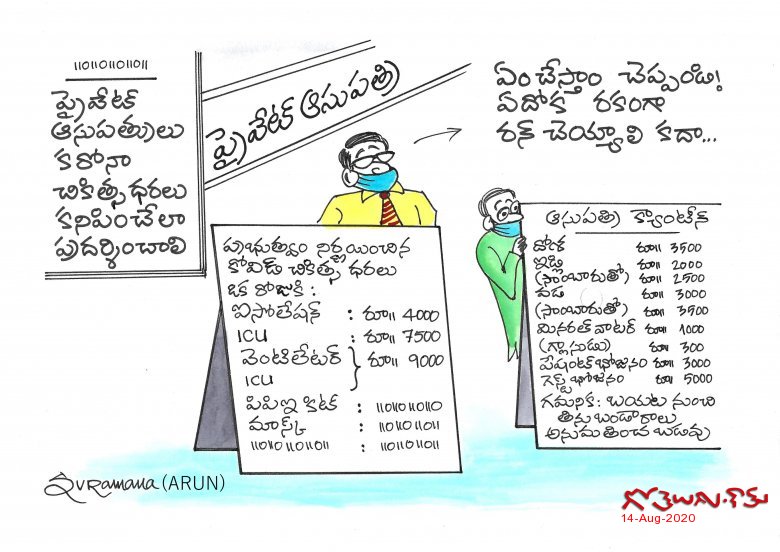 ııoıoııoııoıı
ప్రైవేటక్
ఆసుపత్రులు
కరోనా
చికిత్స ధరలు
కనిపించేలా
ప్రదర్శించాలి
ప్రైవేటక్ ఆసుపత్రి
ఏం చేస్తాం చెప్పండి!
ఏదోక రకంగా
రన్ చెయ్యాలి కదా...
ప్రభుత్వం నిర్ణయించిన
కోవిడ్ చికిత్స ధరలు
ఒక రోజుకి :
ఐసోలేషన్ : రూ॥ 4000
ICU : రూ॥ 7500
వెంటిలేటర్ } రూ॥ 9000
ICU
పిపిఇ కిట్ :
మాస్క్ :
ఆసుపత్రి క్యాంటీన్
దోశ రూ॥ 3500
ఇడ్లి రూ॥ 2000
(సాంబారుతో) రూ॥ 2500
వడ రూ॥ 3000
(సాంబారుతో) రూ॥ 3500
మినరల్ వాటర్ రూ॥ 1000
(గ్లాసుడు) రూ॥ 300
పేషంట్ భోజనం రూ॥ 3000
గెస్ట్ భోజనం రూ॥ 5000
గమనిక : బయట నుంచి
తినుబండారాలు
అనుమతించబడవు
SVRamana (ARUN)
గోతెలుగు.కామ్
14-Aug-2020